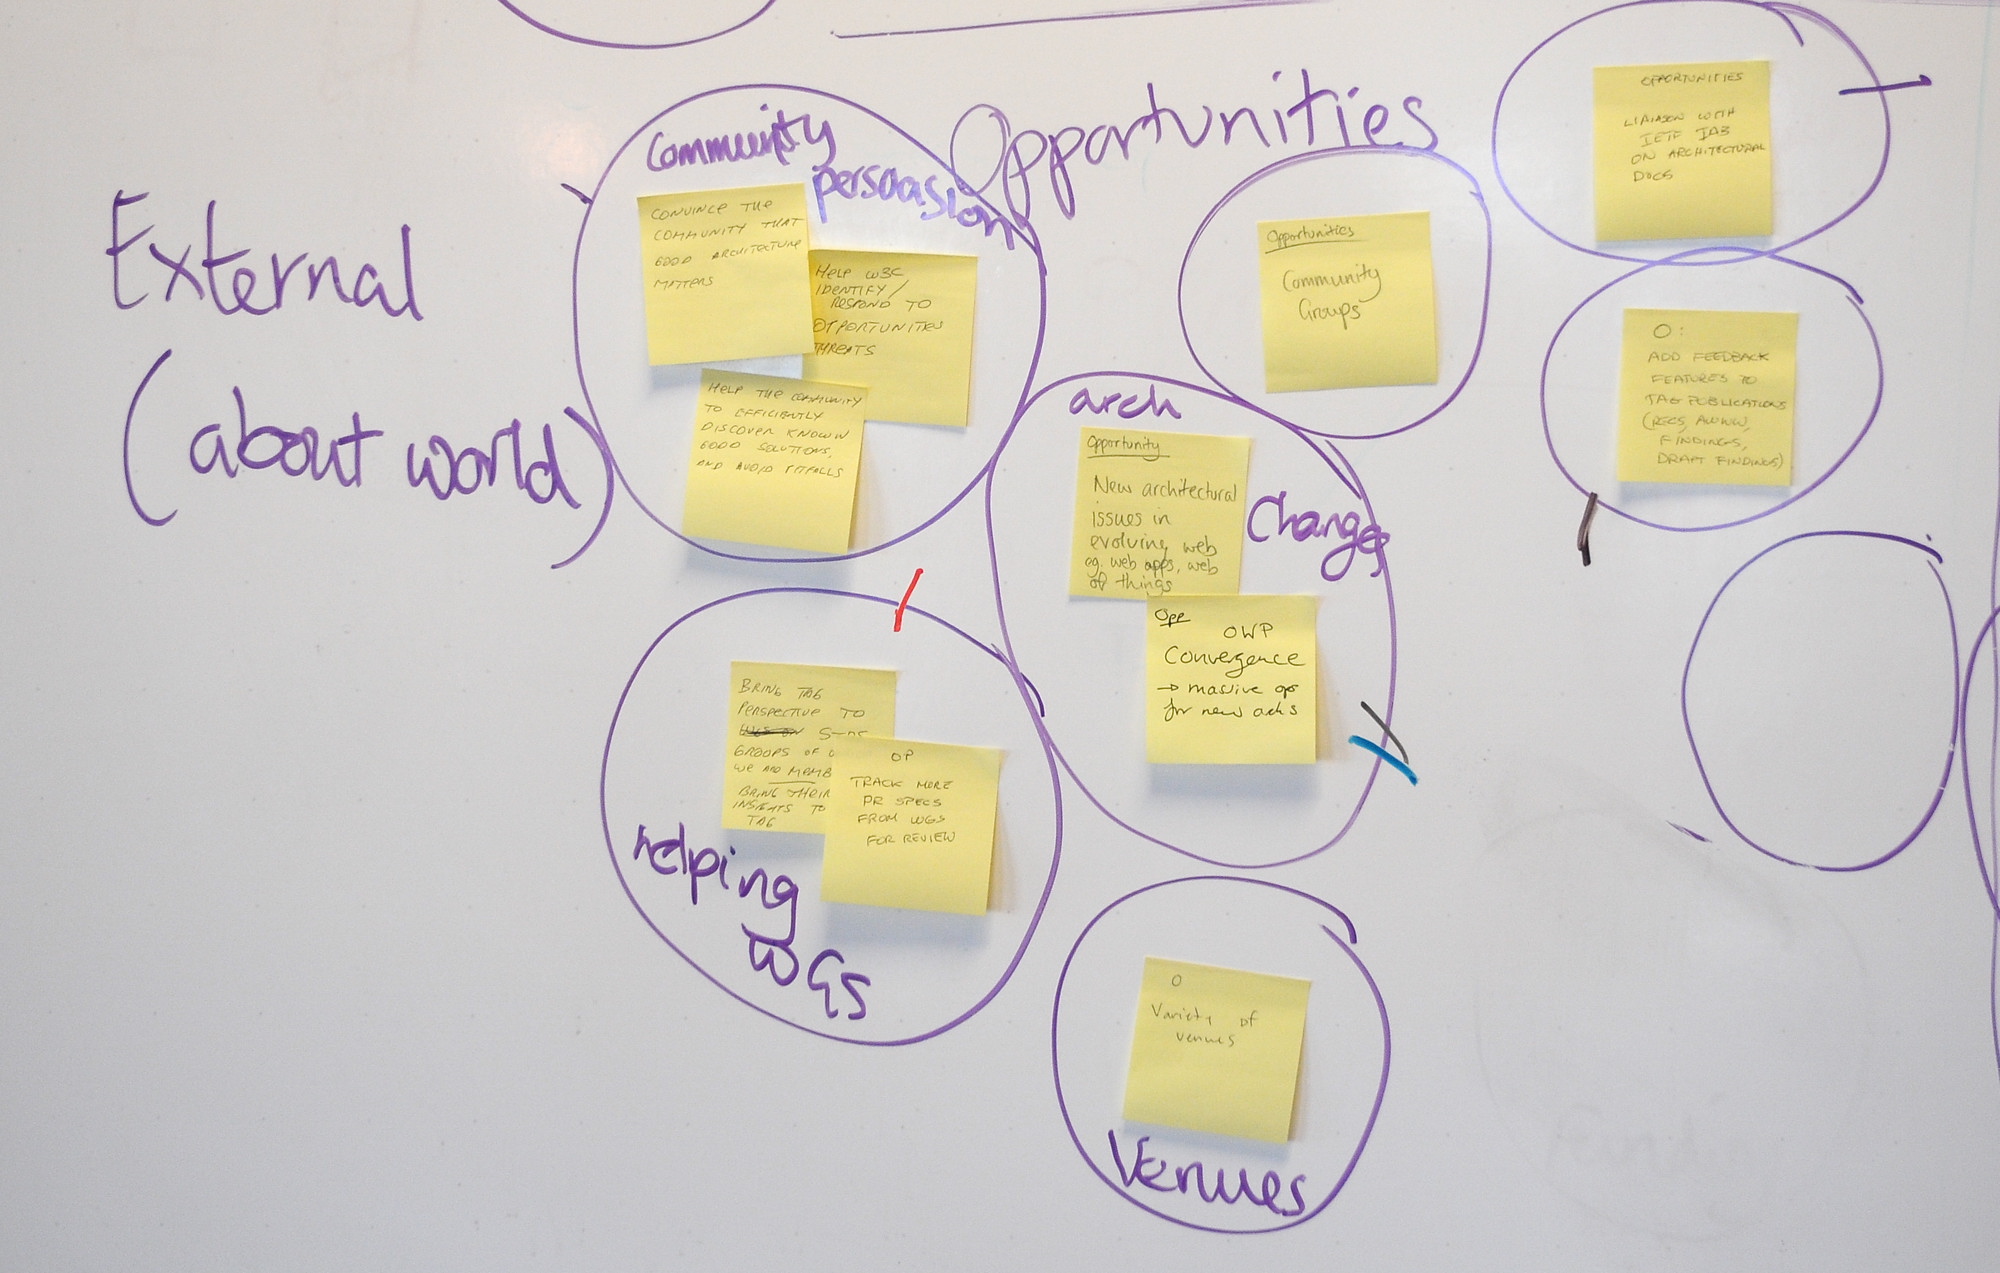 External
(about world)
Opportunities
Community
persuasion
CONVINCE THE
COMMUNITY THAT
GOOD ARCHITECTURE
MATTERS
HELP W3C
IDENTIFY/
RESPOND TO
OPPORTUNITIES
THREATS
HELP THE COMMUNITY
TO EFFICIENTLY
DISCOVER KNOWN
GOOD SOLUTIONS,
AND AVOID PITFALLS
Opportunities
Community
Groups
OPPORTUNITIES
LIAIASON WITH
IETF IAB
ON ARCHITECTURAL
DOCS
O:
ADD FEEDBACK
FEATURES TO
TAG PUBLICATIONS
(RECS, AWWW,
FINDINGS,
DRAFT FINDINGS)
arch
Changes
Opportunity
New architectural
issues in
evolving web
eg. web apps, web
of things
Opp
OWP
Convergence
→ massive op
for new
helping
WGs
BRING TAG
PERSPECTIVE TO
GROUPS OF
WE ARE MEMB
BRING THEIR
INSIGHTS TO
TAG
OP
TRACK MORE
PR SPECS
FROM WGS
FOR REVIEW
O
Variety of
venues
Venues